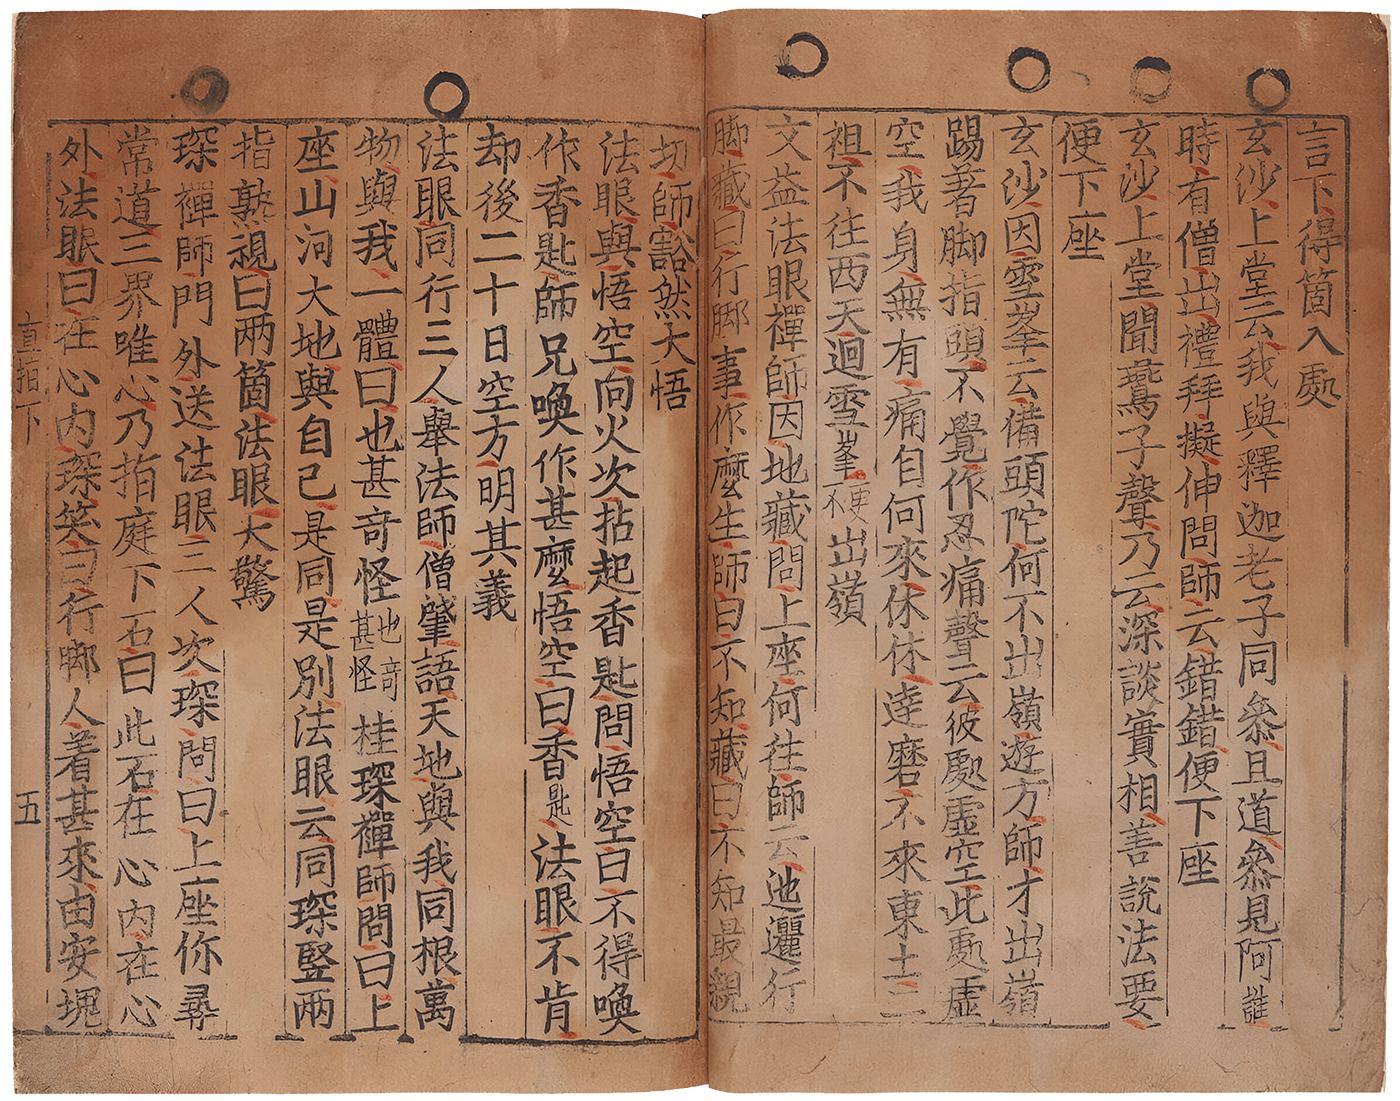 言下得箇入處
玄沙上堂云我與釋迦老子同叅且道叅見阿誰
時有僧出禮拜擬伸問師云錯錯便下座
玄沙上堂聞鷰子聲乃云深談實相善說法要
便下座
玄沙因雪峯云備頭陀何不出嶺遊方師才出嶺
踢著脚指頭不覺作忍痛聲云彼處虛空此處虛
空我身無有痛自何來休休達磨不來東土二
祖不往西天迴雪峯更不出嶺
文益法眼禪師因地藏問上座何往師云迆邐行
脚藏曰行脚事作麽生師曰不知藏曰不知最親
切師豁然大悟
法眼與悟空向火次拈起香匙問悟空曰不得喚
作香匙師兄喚作甚麽悟空曰香匙法眼不肯
却後二十日空方明其義
法眼同行三人舉法師僧肇語天地與我同根萬
物與我一體曰也甚竒怪也竒甚怪桂琛禪師問曰上
座山河大地與自己是同是別法眼云同琛竪兩
指熟視曰兩箇法眼大驚
琛禪師門外送法眼三人次琛問曰上座你尋
常道三界唯心乃指庭下石曰此石在心內在心
外法眼曰在心內琛笑曰行脚人着甚來由安塊
直指下 五